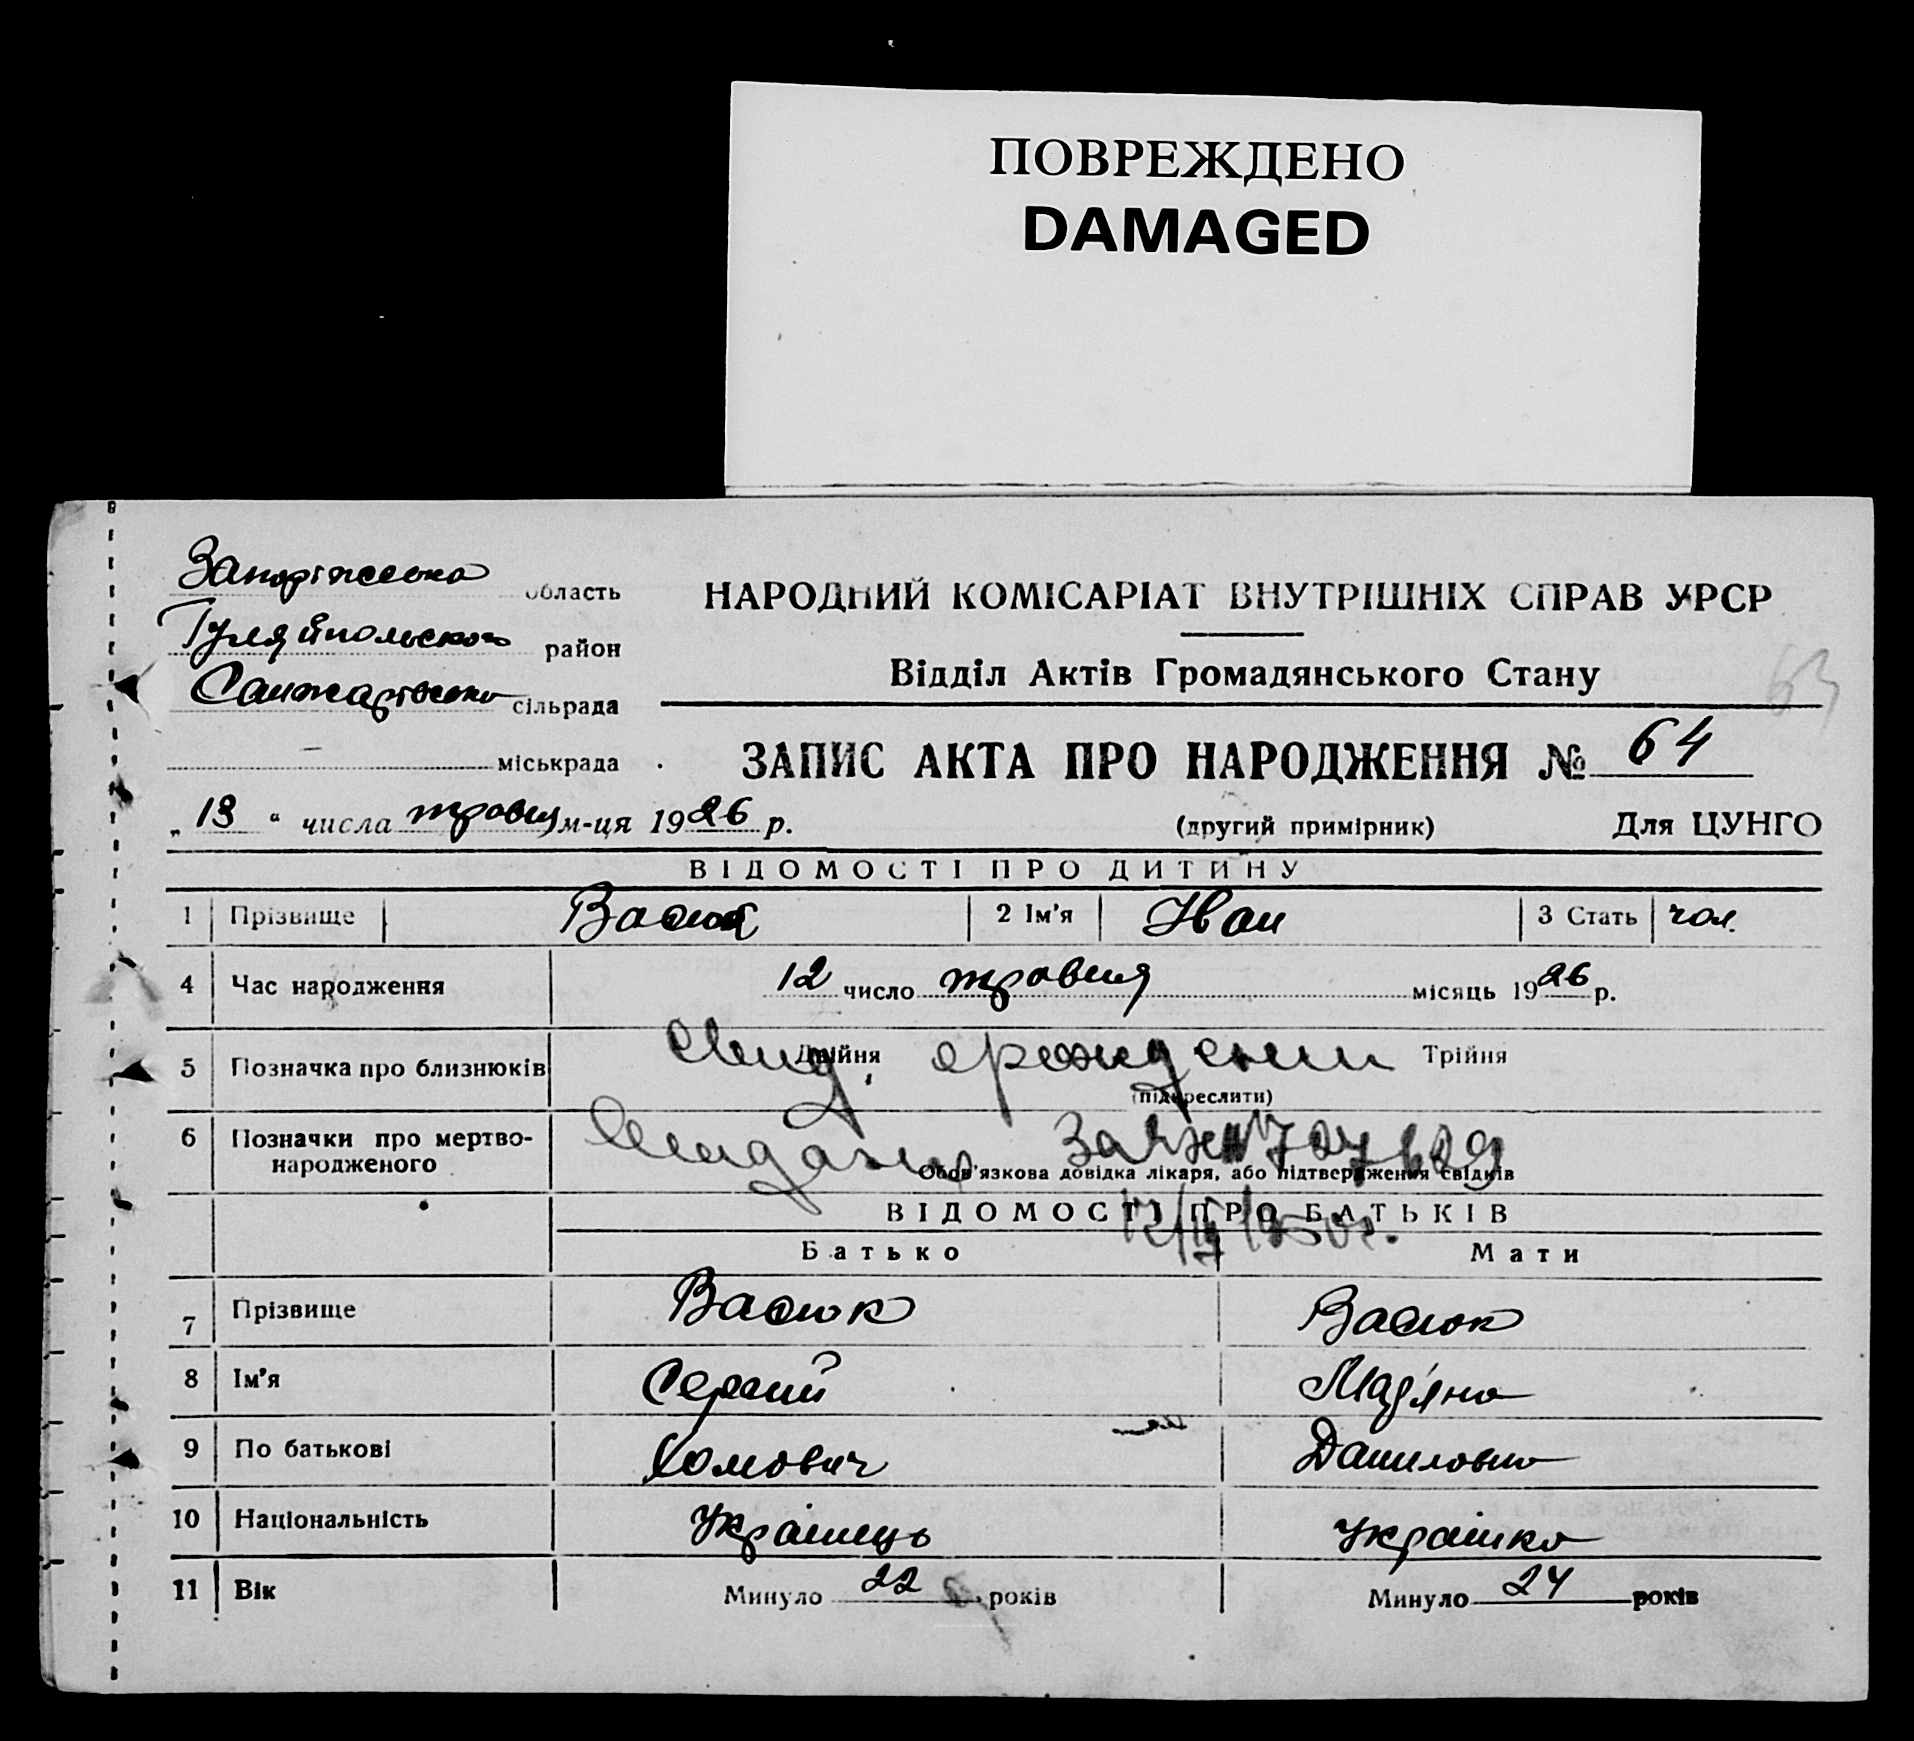 ПОВРЕЖДЕНО
DAMAGED
Запоріжська область
Гуляйпольского район
Санжарівська сільрада
міськрада
НАРОДНИЙ КОМІСАРІАТ ВНУТРІШНІХ СПРАВ УРСР
Відділ Актів Громадянського Стану
63
ЗАПИС АКТА ПРО НАРОДЖЕННЯ № 64
„13“ числа травня м-ця 1926 р.
(другий примірник) Для ЦУНГО
ВІДОМОСТІ ПРО ДИТИНУ
1 Прізвище Васюк 2 Ім'я Иван 3 Стать чол.
4 Час народження 12 число травня місяць 1926 р.
5 Позначка про близнюків Двійня Трійня
(підкреслити)
Свид. о рождении
6 Позначки про мертвонародженого
Обов'язкова довідка лікаря, або підтвердження свідків
ВІДОМОСТІ ПРО БАТЬКІВ
Батько Мати
7 Прізвище Васюк Васюк
8 Ім'я Сергий Мар'яна
9 По батькові Хомович Даниловна
10 Національність Українець Українка
11 Вік Минуло 22 років Минуло 24 років